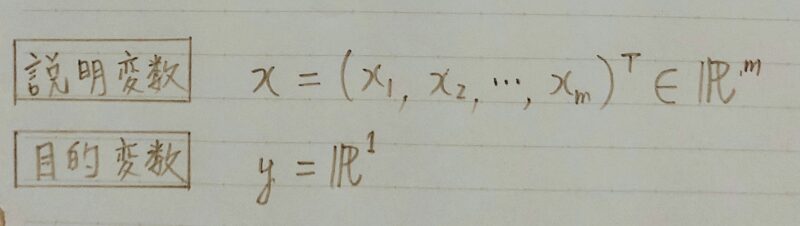 説明変数 x = (x₁, x₂, …, xₘ)ᵀ ∈ ℝᵐ
目的変数 y = ℝ¹